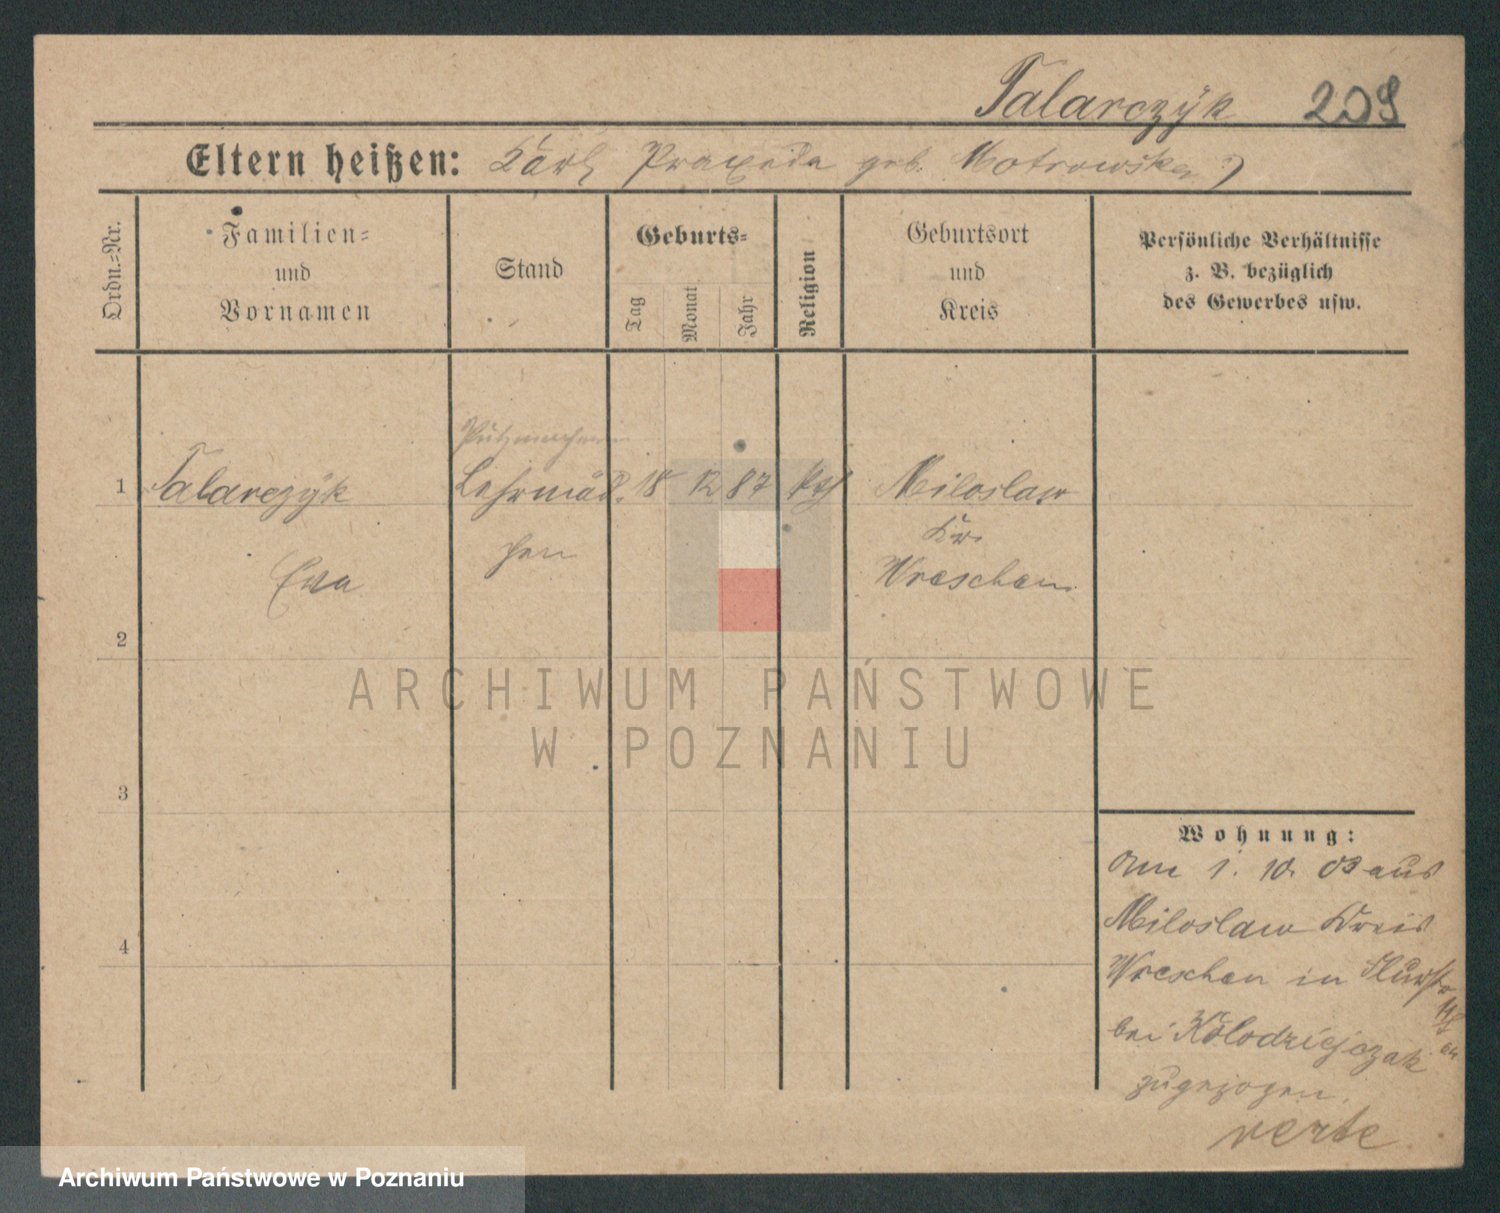 Talarczÿk 209
Eltern heißen: Karl Praxeda geb. Motrowska
Ordn.=Nr.
Familien=
und
Vornamen
Stand
Geburts=
Tag
Monat
Jahr
Religion
Geburtsort
und
Kreis
Persönliche Verhältnisse
z. B. bezüglich
des Gewerbes usw.
Putzmacherin
1 Talarczÿk Lehrmäd. 18 12 87 kth Miloslaw
chen Kr.
Eva Wreschen
2
ARCHIWUM PAŃSTWOWE
W POZNANIU
3
Wohnung:
Am 1. 10. 03 aus
4 Miloslaw Kreis
Wreschen in Flurstr
bei Kolodziejczak
zugezogen.
verte
Archiwum Państwowe w Poznaniu